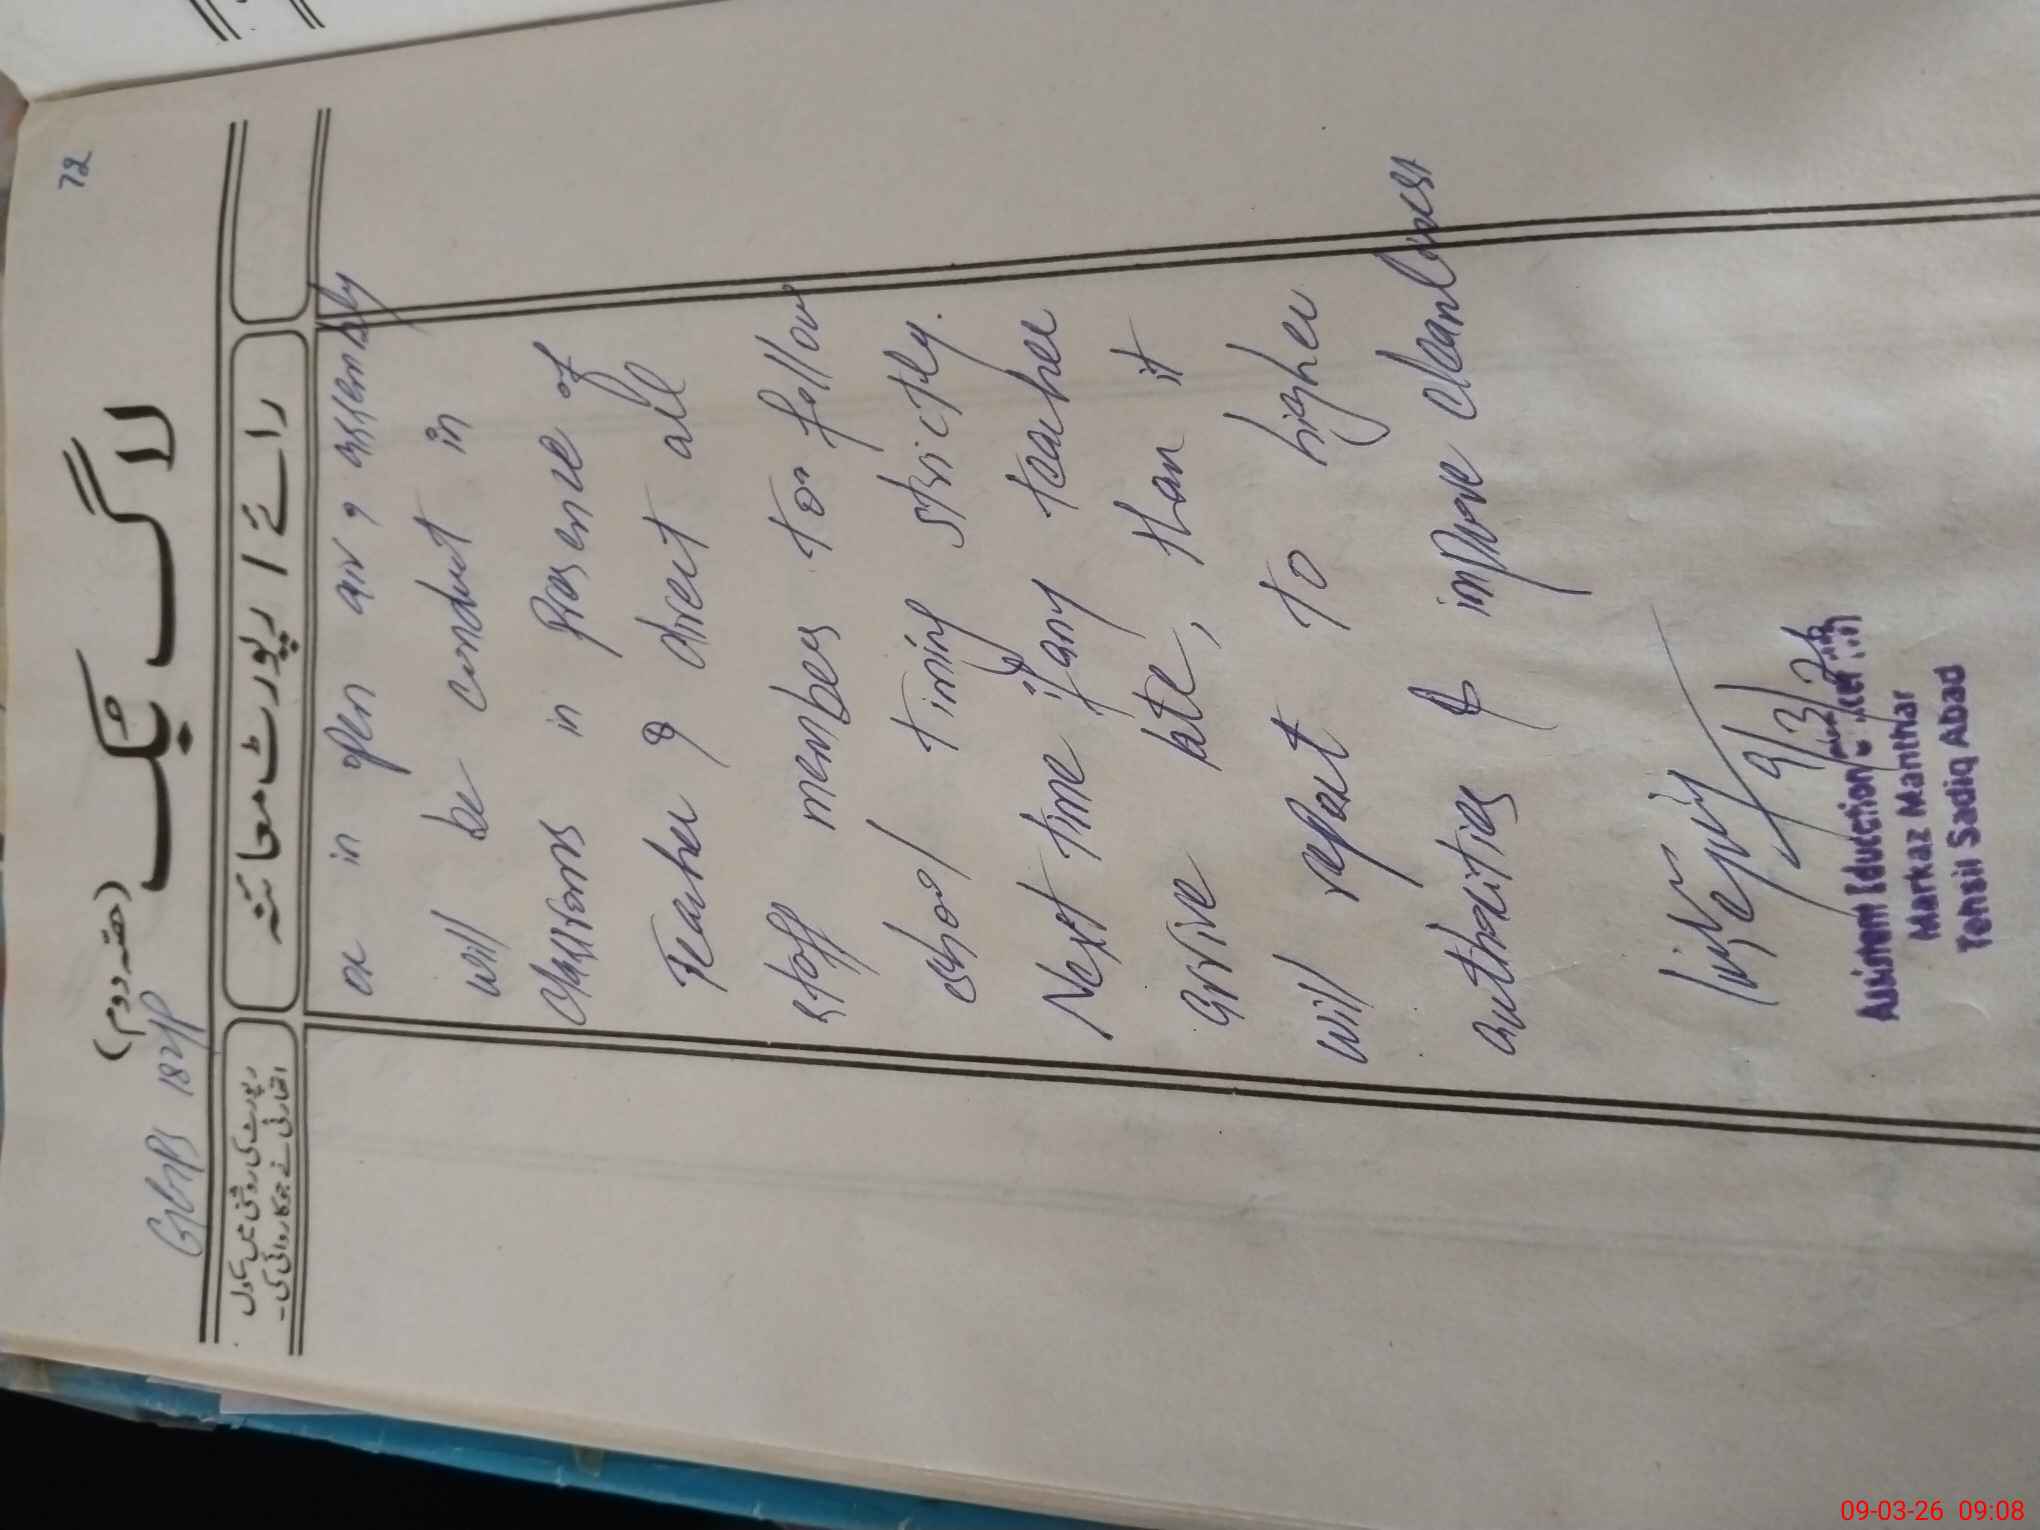 72
لاگ بک
(حصہ دوم)
GGPS 182/P
رائے / رپورٹ معائنہ
رپورٹ کی روشنی میں سکول
اتھارٹی نے جو کاروائی کی۔
or in open air & assembly
will be conduct in
classrooms in presence of
Teacher & direct all
staff members to follow
school timing strictly.
Next time if any teacher
arrive late, than it
will report to higher
authorities & improve cleanliness
9/3/26
Assistant Education
Markaz Manthar
Tehsil Sadiq Abad
09-03-26 09:08